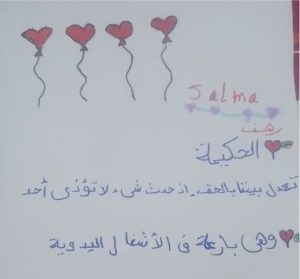 Salma
رهف
الحكيمة
تعدل بيننا بالحق إذ حدث شيء لا تؤذى أحد
وهي بارعة في الأشغال اليدوية